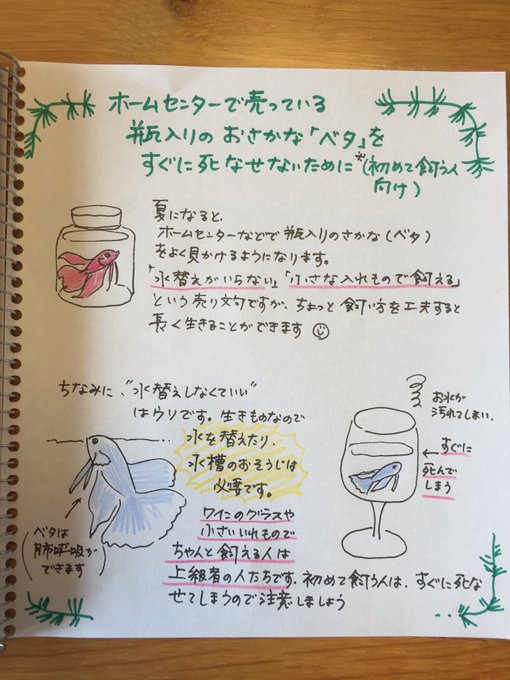 ホームセンターで売っている
瓶入りのおさかな「ベタ」を
すぐに死なせないために*(初めて飼う人
向け)
夏になると、
ホームセンターなどで瓶入りのさかな(ベタ)
をよく見かけるようになります。
「水替えがいらない」「小さな入れもので飼える」
という売り文句ですが、ちょっと飼い方を工夫すると
長く生きることができます
ちなみに、"水替えしなくていい"
はウリです。生きものなので
水を替えたり、
水槽のおそうじは
必要です。
ワイングラスや
小さいいれもので
ちゃんと飼える人は
上級者の人たちです。初めて飼う人は、すぐに死な
せてしまうので注意しましょう
(ベタは
肺呼吸が
できます)
お水が
汚れてしまい、
←すぐに
死んで
しまう